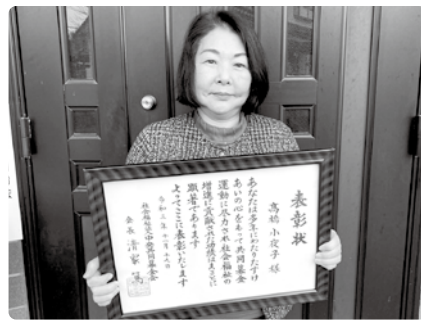 表彰状
高橋 小夜子 様
あなたは多年にわたりたすけ
あいの心をもって共同募金
運動に尽力され社会福祉の
増進に貢献された功績はまことに
顕著であります
よってここに表彰いたします
令和三年十一月
社会福祉法人中央共同募金会
会長 清家 篤